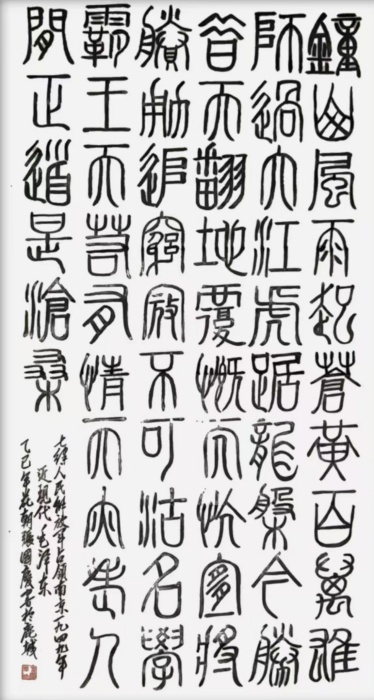 鐘山風雨起蒼黃百萬雄
師過大江虎踞龍槃今勝
昔天翻地覆慨而慷宜將
賸勇追窮寇不可沽名學
霸王天若有情天亦老人
間正道是滄桑
七律人民解放军占领南京一九四九年
近現代毛泽东
乙巳年花朝張國慶書於鹿城